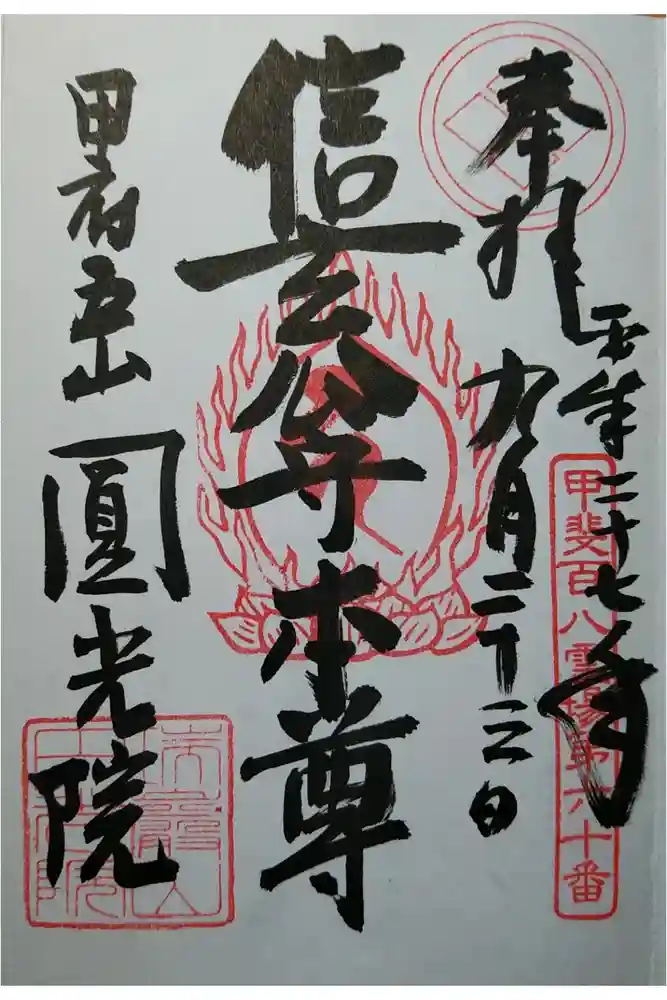 奉拝
平成二十七年
九月二十三日
甲斐百八霊場第六十番
信玄公守本尊
甲府五山 圓光院